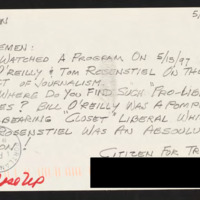 5/
EMEN:
WATCHED A PROGRAM ON 5/13/97
O'REILLY & TOM ROSENSTIEL ON THE
T OF JOURNALISM.
WHERE DO YOU FIND SUCH "PRO-LIBE
ES? BILL O'REILLY WAS A POMP
BEARING "CLOSET" LIBERAL WHI
ROSENSTIEL WAS AN ABSOLU
ON!
CITIZEN FOR